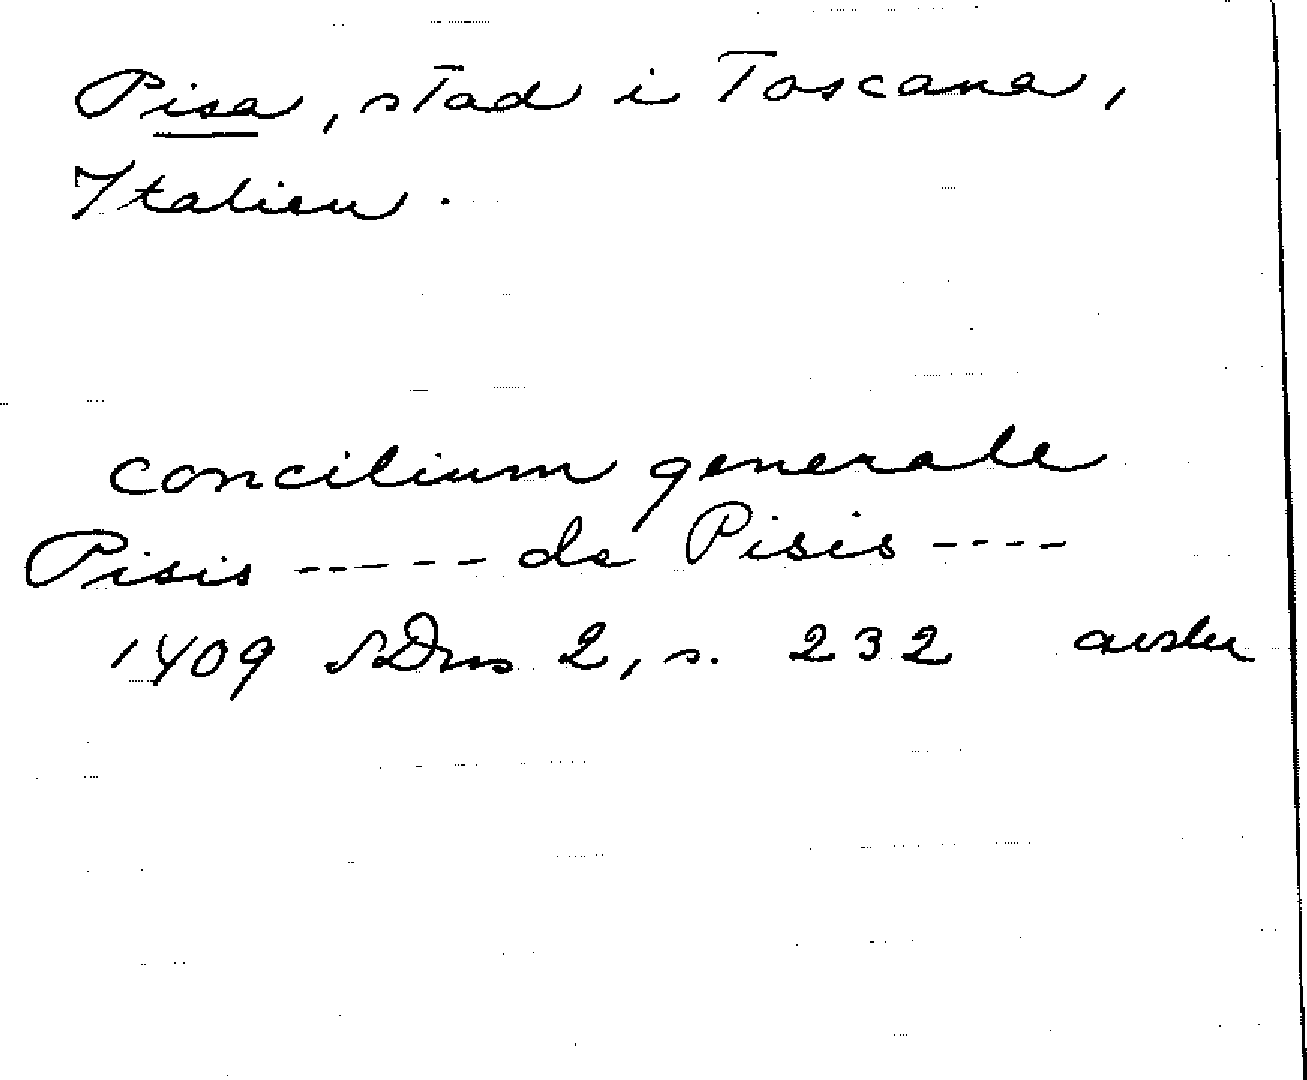 Pisa, stad i Toscana,
Italien.
concilium generale
Pisis ----- de Pisis ----
1409 SDns 2, s. 232 avskr